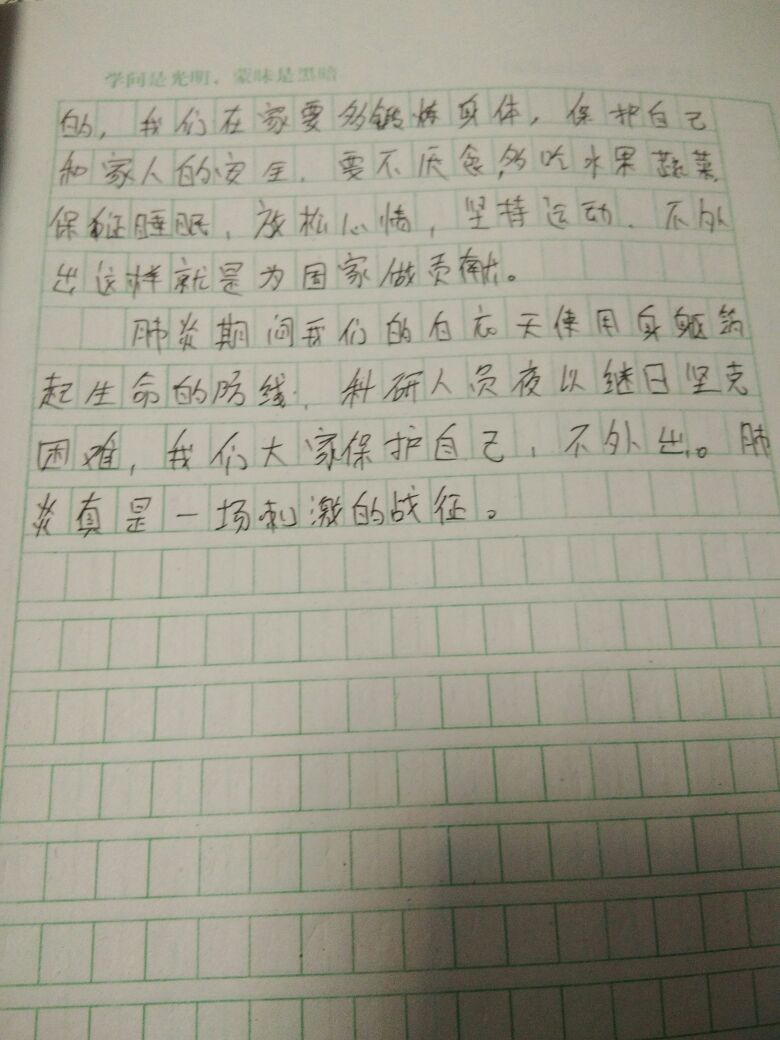 学问是光明，蒙昧是黑暗
的，我们在家要多锻炼身体，保护自己
和家人的安全．要不厌食，多吃水果蔬菜，
保证睡眠，放松心情，坚持运动．不外
出这样就是为国家做贡献。
肺炎期间我们的白衣天使用身躯筑
起生命的防线．科研人员夜以继日坚克
困难，我们大家保护自己，不外出。肺
炎真是一场刺激的战征。